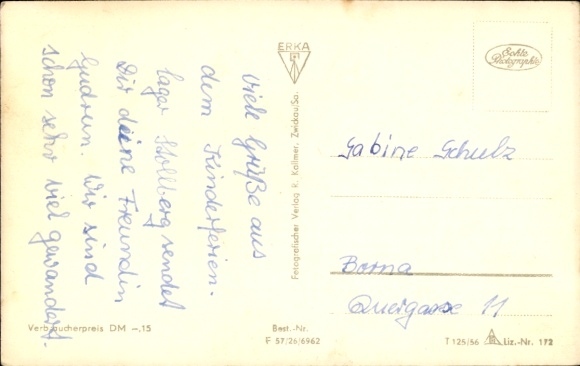 Viele Grüße aus
dem Kinderferien-
lager Stollberg sendet
Dir deine Freundin
Gudrun. Wir sind
schon sehr viel gewandert.
ERKA
Fotografischer Verlag R. Kallmer, Zwickau/Sa.
Echte
Photographie
Gabine Schulz
Borna
Quergasse 11
Verbraucherpreis DM –.15
Best.-Nr.
F 57/26/6962
T 125/56
Liz.-Nr. 172